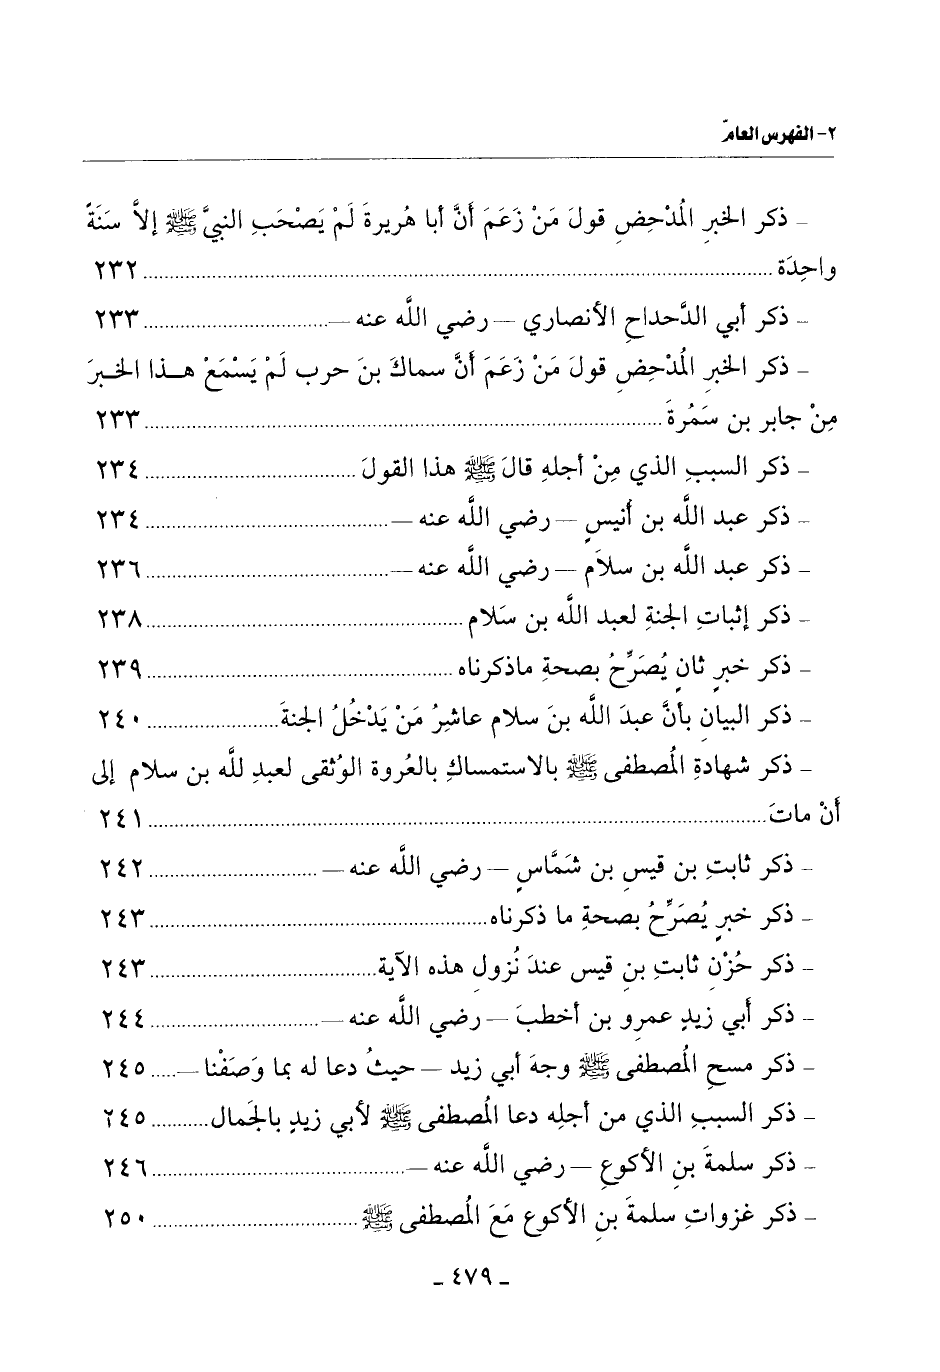 ٢- الفهرس العامّ
- ذكر الخبرِ المُدْحِضِ قولَ مَنْ زَعَمَ أَنَّ أبا هُريرةَ لَمْ يَصْحَبِ النبيَّ ﷺ إلاَّ سَنَةً
واحِدَة ........ ٢٣٢
- ذكر أبي الدَّحداحِ الأنصاري — رضي اللَّه عنه — ........ ٢٣٣
- ذكر الخبرِ المُدْحِضِ قولَ مَنْ زَعَمَ أنَّ سماكَ بنَ حرب لَمْ يَسْمَعْ هـذا الخـبرَ
مِنْ جابر بن سَمُرةَ ........ ٢٣٣
- ذكر السببِ الذي مِنْ أجلهِ قالَ ﷺ هذا القولَ ........ ٢٣٤
- ذكر عبد اللَّه بن أُنيسٍ — رضي اللَّه عنه — ........ ٢٣٤
- ذكر عبد اللَّه بن سلاَمٍ — رضي اللَّه عنه — ........ ٢٣٦
- ذكر إثباتِ الجنةِ لعبد اللَّه بن سَلام ........ ٢٣٨
- ذكر خبرٍ ثانٍ يُصَرِّحُ بصحةِ ماذكرناه ........ ٢٣٩
- ذكر البيانِ بأنَّ عبدَ اللَّه بنَ سلام عاشِرُ مَنْ يَدْخُلُ الجنةَ ........ ٢٤٠
- ذكر شهادةِ المُصطفى ﷺ بالاستمساكِ بالعُروة الوُثقى لعبدِ للَّه بن سلام إلى
أَنْ ماتَ ........ ٢٤١
- ذكر ثابتِ بن قيسِ بن شَمَّاسٍ — رضي اللَّه عنه — ........ ٢٤٢
- ذكر خبرٍ يُصَرِّحُ بصحةِ ما ذكرناه ........ ٢٤٣
- ذكر حُزْنِ ثابتِ بنِ قيس عندَ نُزولِ هذه الآية ........ ٢٤٣
- ذكر أَبي زيدٍ عمرِو بن أخطبَ — رضي اللَّه عنه — ........ ٢٤٤
- ذكر مسحِ المُصطفى ﷺ وجهَ أبي زيد — حيثُ دعا له بما وَصَفْنا — ..... ٢٤٥
- ذكر السببِ الذي من أجلِه دعا المُصطفى ﷺ لأبي زيدٍ بالجَمال ........ ٢٤٥
- ذكر سلمةَ بنِ الأكوعِ — رضي اللَّه عنه — ........ ٢٤٦
- ذكر غزواتِ سلمةَ بنِ الأكوع مَعَ المُصطفى ﷺ ........ ٢٥٠
- ٤٧٩ -